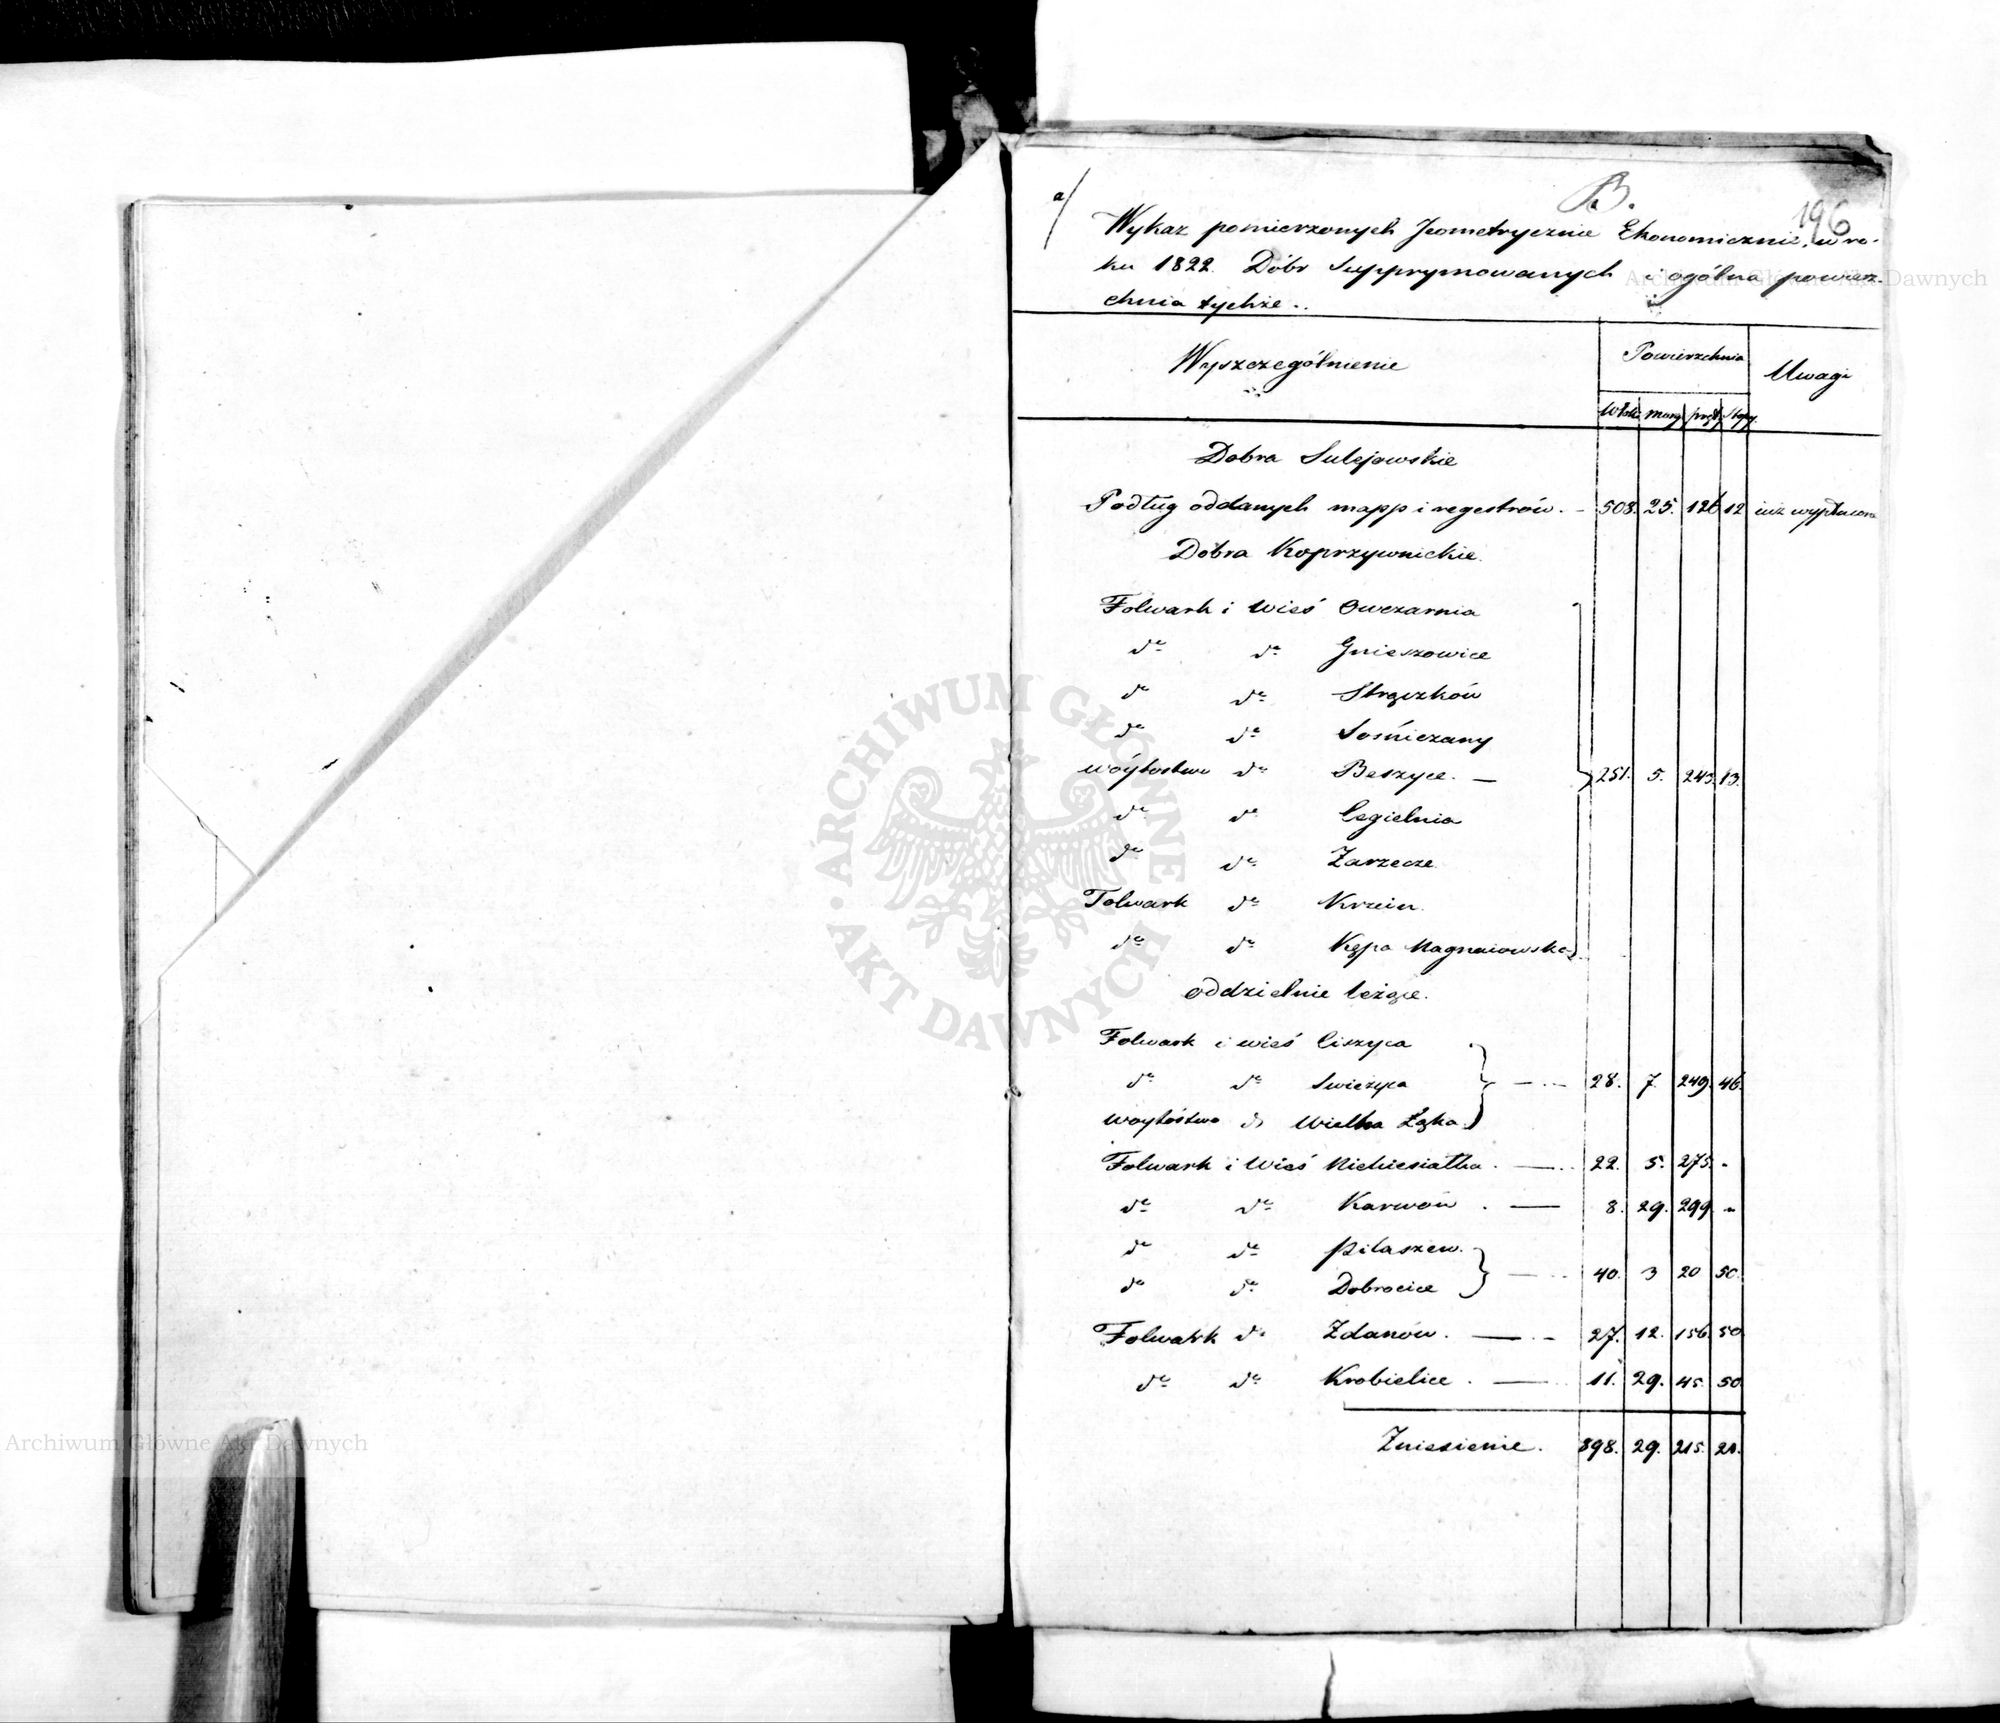 a/
B.
196
Wykaz pomierzonych Jeometrycznie Ekonomicznie, w ro-
ku 1822. Dóbr Supprymowanych i ogólna powierz-
chnia tychże.
Wyszczególnienie Powierzchnia Uwagi
Włók morg pręt stopy
Dobra Sulejowskie
Podług oddanych mapp i regestrów. 508. 25. 126 12 już wypłacone
Dobra Koprzywnickie.
Folwark i Wieś Owczarnia
do do Gnieszowice
do do Strączków
do do Sośniczany
Wóytostwo do Beszyce. 251. 5. 243. 13.
do do Cegielnia
do do Zarzecze
Folwark do Krzcin.
do do Kępa Magnaiowska
oddzielnie leżące.
Folwark i wieś Ciszyca
do do Swieżyca 28. 7. 249. 46.
Woytóstwo do Wielka Łąka
Folwark i Wieś 22. 5. 275. -
do do Karwów. 8. 29. 299. -
do do Pilaszew.
do do Dobrocice 40. 3 20 50.
Folwark do Zdanów. 27. 12. 156. 50
do do Krobielice. 11. 29. 45. 50.
Zniesienie. 898. 29. 215. 21.
ARCHIWUM GŁÓWNE AKT DAWNYCH
Archiwum Główne Akt Dawnych
Archiwum Główne Akt Dawnych